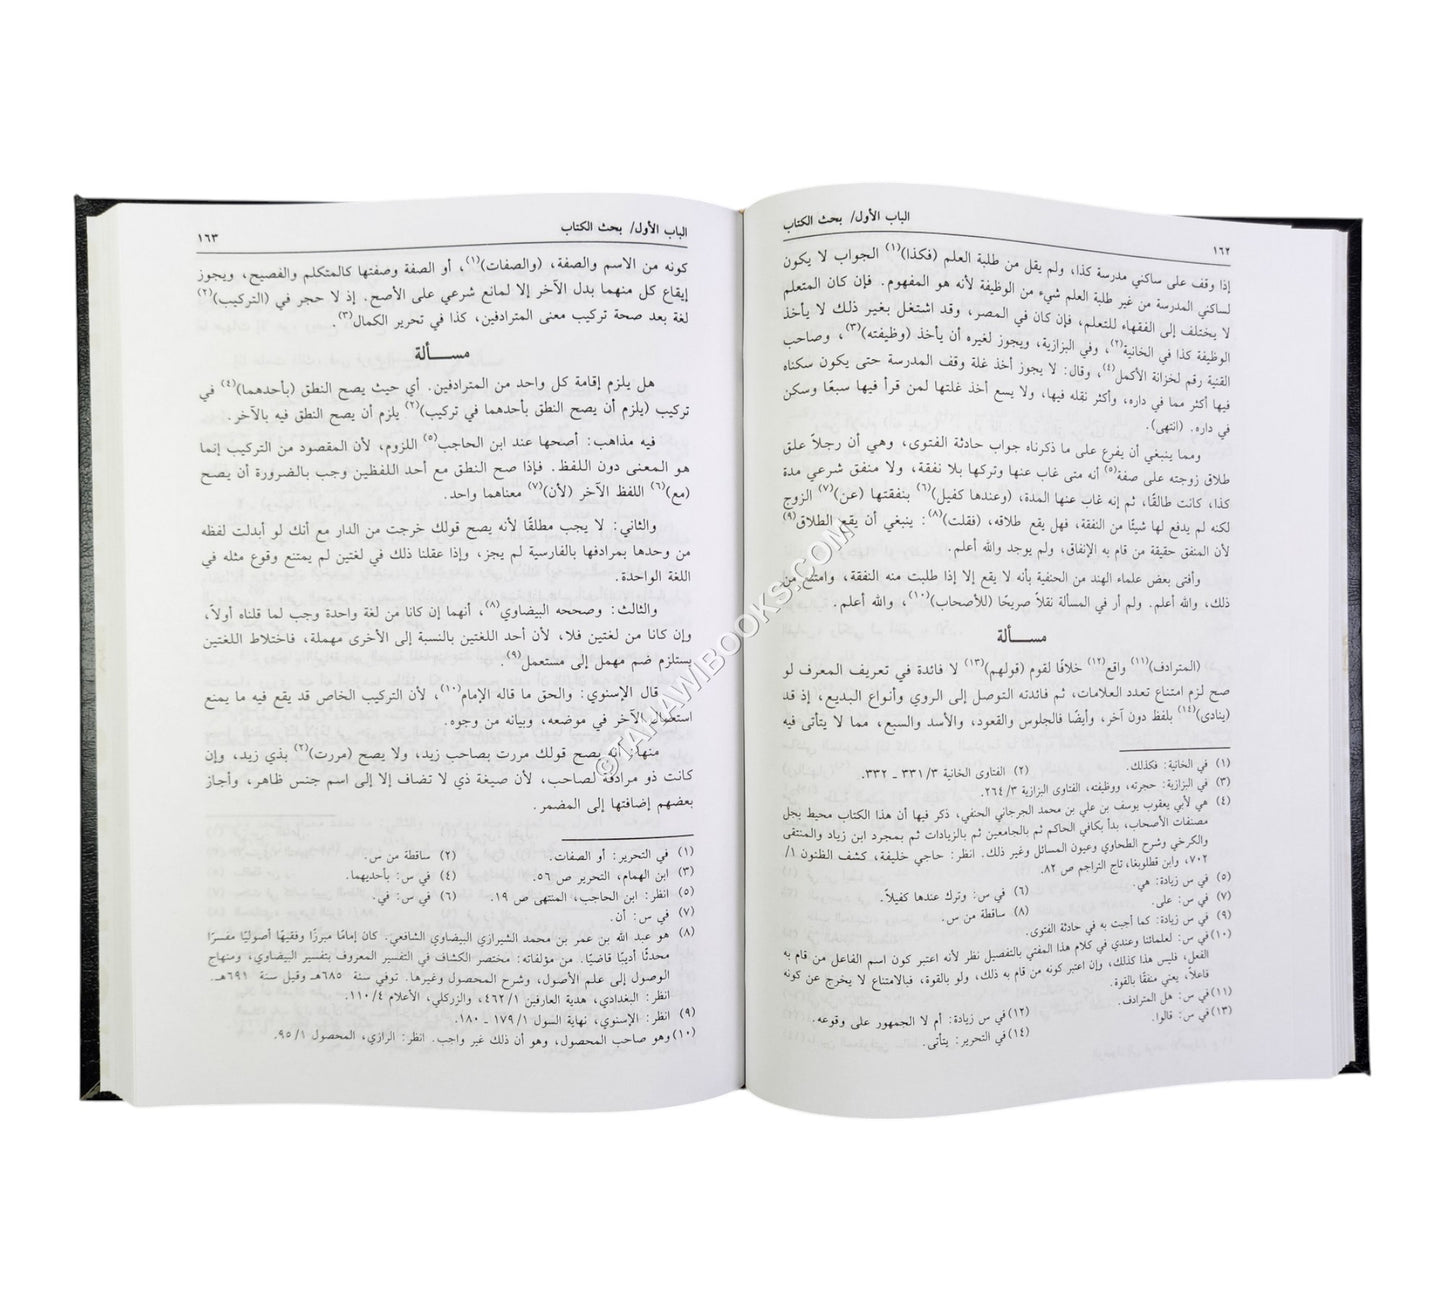 الباب الأول/ بحث الكتاب
١٦٢
إذا وقف على ساكني مدرسة كذا، ولم يقل من طلبة العلم (فكذا)(١) الجواب لا يكون
لساكني المدرسة من غير طلبة العلم شيء من الوظيفة لأنه هو المفهوم. فإن كان المتعلم
لا يختلف إلى الفقهاء للتعلم، فإن كان في المصر، وقد اشتغل بغير ذلك لا يأخذ
الوظيفة كذا في الخانية(٢)، وفي البزازية، ويجوز لغيره أن يأخذ (وظيفته)(٣)، وصاحب
القنية رقم لخزانة الأكمل(٤)، وقال: لا يجوز أخذ غلة وقف المدرسة حتى يكون سكناه
فيها أكثر مما في داره، وأكثر نقله فيها، ولا يسع أخذ غلتها لمن قرأ فيها سبعًا وسكن
في داره. (انتهى).
ومما ينبغي أن يفرع على ما ذكرناه جواب حادثة الفتوى، وهي أن رجلاً علق
طلاق زوجته على صفة(٥) أنه متى غاب عنها وتركها بلا نفقة، ولا منفق شرعي مدة
كذا، كانت طالقًا، ثم إنه غاب عنها المدة، (وعندها كفيل)(٦) بنفقتها (عن)(٧) الزوج
لكنه لم يدفع لها شيئًا من النفقة، فهل يقع طلاقه، (فقلت)(٨): ينبغي أن يقع الطلاق(٩)
لأن المنفق حقيقة من قام به الإنفاق، ولم يوجد والله أعلم.
وأفتى بعض علماء الهند من الحنفية بأنه لا يقع إلا إذا طلبت منه النفقة، وامتنع من
ذلك، والله أعلم. ولم أر في المسألة نقلاً صريحًا (للأصحاب)(١٠)، والله أعلم.
مسـألة
(المترادف)(١١) واقع(١٢) خلافًا لقوم (قولهم)(١٣) لا فائدة في تعريف المعرف لو
صح لزم امتناع تعدد العلامات، ثم فائدته التوصل إلى الروي وأنواع البديع، إذ قد
(ينادى)(١٤) بلفظ دون آخر، وأيضًا فالجلوس والقعود، والأسد والسبع، مما لا يتأتى فيه
(١) في الخانية: فكذلك. (٢) الفتاوى الخانية ٣/ ٣٣١ ـ ٣٣٢.
(٣) في البزازية: حجرته، ووظيفته، الفتاوى البزازية ٣/ ٢٦٤.
(٤) هي لأبي يعقوب يوسف بن علي بن محمد الجرجاني الحنفي، ذكر فيها أن هذا الكتاب محيط بجل
مصنفات الأصحاب، بدأ بكافي الحاكم ثم بالجامعين ثم بالزيادات ثم بمجرد ابن زياد والمنتقى
والكرخي وشرح الطحاوي وعيون المسائل وغير ذلك. انظر: حاجي خليفة، كشف الظنون ١/
٧٠٢، وابن قطلوبغا، تاج التراجم ص ٨٢.
(٥) في س زيادة: هي. (٦) في س: وترك عندها كفيلاً.
(٧) في س: على. (٨) ساقطة من س.
(٩) في س زيادة: كما أجبت به في حادثة الفتوى.
(١٠) في س: لعلمائنا وعندي في كلام هذا المفتي بالتفصيل نظر لأنه اعتبر كون اسم الفاعل من قام به
الفعل، فليس هذا كذلك، وإن اعتبر كونه من قام به ذلك، ولو بالقوة، فبالامتناع لا يخرج عن كونه
فاعلاً، يعني منفقًا بالقوة.
(١١) في س: هل المترادف. (١٢) في س زيادة: أم لا الجمهور على وقوعه.
(١٣) في س: قالوا. (١٤) في التحرير: يتأتى.
الباب الأول/ بحث الكتاب
١٦٣
كونه من الاسم والصفة، (والصفات)(١)، أو الصفة وصفتها كالمتكلم والفصيح، ويجوز
إيقاع كل منهما بدل الآخر إلا لمانع شرعي على الأصح. إذ لا حجر في (التركيب)(٢)
لغة بعد صحة تركيب معنى المترادفين، كذا في تحرير الكمال(٣).
مسـألة
هل يلزم إقامة كل واحد من المترادفين. أي حيث يصح النطق (بأحدهما)(٤) في
تركيب (يلزم أن يصح النطق بأحدهما في تركيب)(٢) يلزم أن يصح النطق فيه بالآخر.
فيه مذاهب: أصحها عند ابن الحاجب(٥) اللزوم، لأن المقصود من التركيب إنما
هو المعنى دون اللفظ. فإذا صح النطق مع أحد اللفظين وجب بالضرورة أن يصح
(مع)(٦) اللفظ الآخر (لأن)(٧) معناهما واحد.
والثاني: لا يجب مطلقًا لأنه يصح قولك خرجت من الدار مع أنك لو أبدلت لفظه
من وحدها بمرادفها بالفارسية لم يجز، وإذا عقلنا ذلك في لغتين لم يمتنع وقوع مثله في
اللغة الواحدة.
والثالث: وصححه البيضاوي(٨)، أنهما إن كانا من لغة واحدة وجب لما قلناه أولاً،
وإن كانا من لغتين فلا، لأن أحد اللغتين بالنسبة إلى الأخرى مهملة، فاختلاط اللغتين
يستلزم ضم مهمل إلى مستعمل(٩).
قال الإسنوي: والحق ما قاله الإمام(١٠)، لأن التركيب الخاص قد يقع فيه ما يمنع
استعمال الآخر في موضعه، وبيانه من وجوه.
منها: أنه يصح قولك مررت بصاحب زيد، ولا يصح (مررت)(٢) بذي زيد، وإن
كانت ذو مرادفة لصاحب، لأن صيغة ذي لا تضاف إلا إلى اسم جنس ظاهر، وأجاز
بعضهم إضافتها إلى المضمر.
(١) في التحرير: أو الصفات. (٢) ساقطة من س.
(٣) ابن الهمام، التحرير ص ٥٦. (٤) في س: بأحديهما.
(٥) انظر: ابن الحاجب، المنتهى ص ١٩. (٦) في س: في.
(٧) في س: أن.
(٨) هو عبد الله بن عمر بن محمد الشيرازي البيضاوي الشافعي. كان إمامًا مبرزًا وفقيهًا أصوليًا مفسرًا
محدثًا أديبًا قاضيًا. من مؤلفاته: مختصر الكشاف في التفسير المعروف بتفسير البيضاوي، ومنهاج
الوصول إلى علم الأصول، وشرح المحصول وغيرها. توفي سنة ٦٨٥هـ وقيل سنة ٦٩١هـ.
انظر: البغدادي، هدية العارفين ١/ ٤٦٢، والزركلي، الأعلام ٤/ ١١٠.
(٩) انظر: الإسنوي، نهاية السول ١/ ١٧٩ ـ ١٨٠.
(١٠) وهو صاحب المحصول، وهو أن ذلك غير واجب. انظر: الرازي، المحصول ١/ ٩٥.
©TAHAWIBOOKS.COM